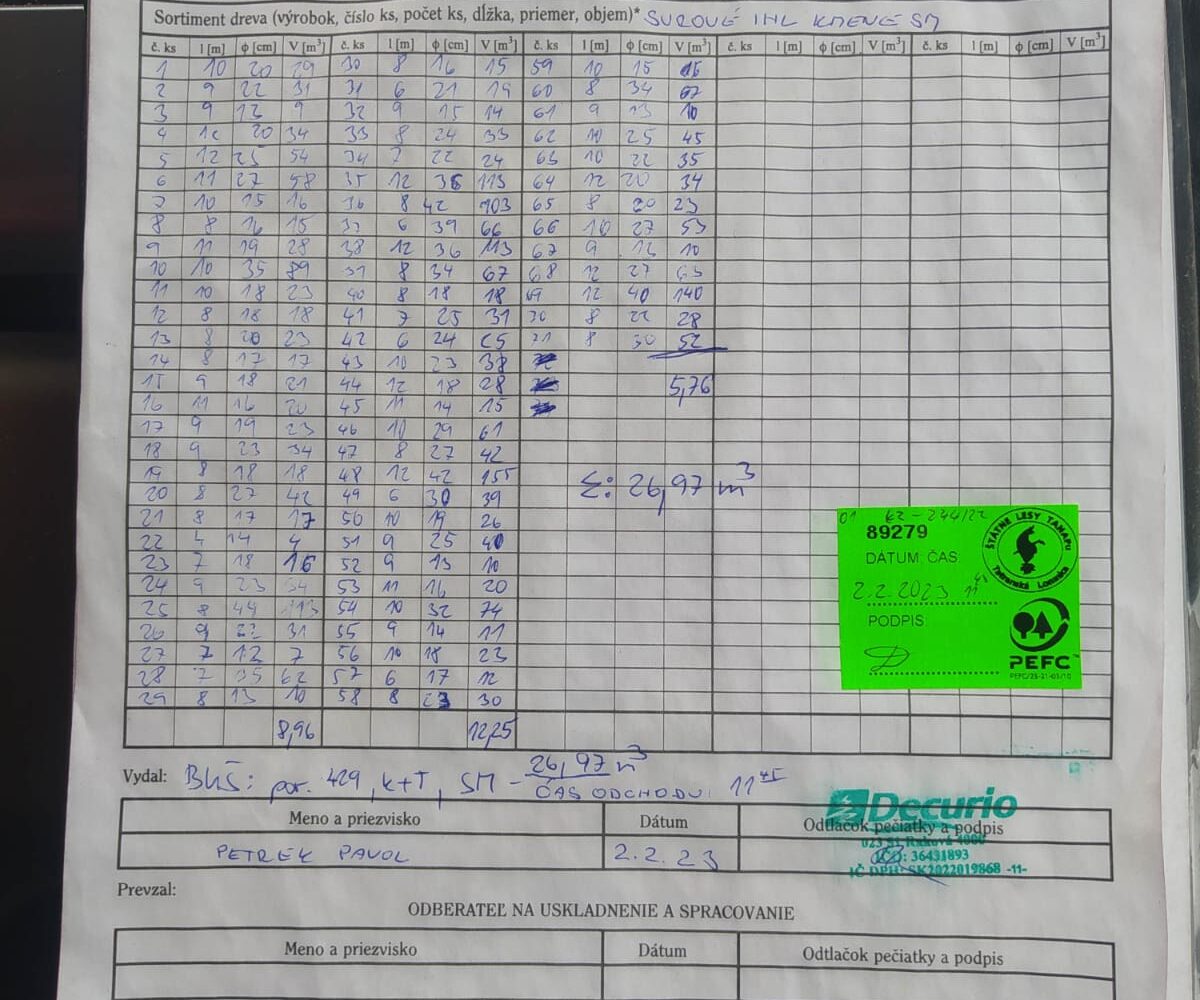 Sortiment dreva (výrobok, číslo ks, počet ks, dĺžka, priemer, objem)* SUROVÉ IHL KMENE SM
č. ks l [m] ϕ [cm] V [m³] č. ks l [m] ϕ [cm] V [m³] č. ks l [m] ϕ [cm] V [m³] č. ks l [m] ϕ [cm] V [m³] č. ks l [m] ϕ [cm] V [m³]
1 10 20 29 30 8 16 15 59 10 15 16
2 9 22 31 31 6 21 19 60 8 34 67
3 9 13 9 32 9 15 14 61 9 13 10
4 12 20 34 33 8 24 33 62 10 25 45
5 12 25 54 34 7 22 24 63 10 22 35
6 11 27 58 35 12 36 113 64 12 20 34
7 10 15 16 36 8 42 103 65 8 20 23
8 8 16 15 37 6 39 66 66 10 27 53
9 11 19 28 38 12 36 113 67 9 13 10
10 10 35 89 39 8 34 67 68 12 27 63
11 10 18 23 40 8 18 18 69 12 40 140
12 8 18 18 41 7 25 31 70 8 22 28
13 8 20 23 42 6 24 25 71 8 30 52
14 8 17 17 43 10 23 38
15 9 18 21 44 12 18 28 5,76
16 11 16 20 45 11 14 15
17 9 19 23 46 10 29 61
18 9 23 34 47 8 27 42
19 8 18 18 48 12 42 155
20 8 27 42 49 6 30 39 Σ: 26,97 m³
21 8 17 17 50 10 19 26
22 4 14 4 51 9 25 40
23 7 18 16 52 9 13 10
24 9 23 34 53 11 16 20
25 8 44 113 54 10 32 74
26 9 22 31 55 9 14 11
27 7 12 7 56 10 18 23
28 7 35 62 57 6 17 12
29 8 13 10 58 8 23 30
8,96 12,25
01 62-244/22
89279
DÁTUM: ČAS
2.2.2023 11 45
PODPIS:
ŠTÁTNE LESY TANAPU
Tatranská Lomnica
PEFC™
PEFC/25-21-03/10
Vydal: BKŠ: por. 429, k+T, SM - 26,97 m³
ČAS ODCHODU: 11 45
Decurio
Meno a priezvisko Dátum Odtlačok pečiatky a podpis
023 51 Raková 4000
PETREK PAVOL 2.2.23
IČO: 36431893
IČ DPH: SK2022019868 -11-
Prevzal:
ODBERATEĽ NA USKLADNENIE A SPRACOVANIE
Meno a priezvisko Dátum Odtlačok pečiatky a podpis